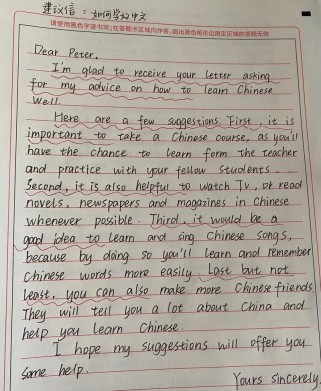 建议信：如何学好中文
请使用黑色字迹书写；在答题卡区域内作答，超出黑色矩形边框定区域的答题无效
Dear Peter,
I'm glad to receive your letter asking
for my advice on how to learn Chinese
well.
Here are a few suggestions. First, it is
important to take a Chinese course, as you'll
have the chance to learn form the teacher
and practice with your fellow students.
Second, it is also helpful to watch TV, or read
novels, newspapers and magazines in Chinese
whenever possible. Third, it would be a
good idea to learn and sing Chinese songs,
because by doing so you'll learn and remember
Chinese words more easily. Last but not
least, you can also make more Chinese friends
They will tell you a lot about China and
help you learn Chinese.
I hope my suggestions will offer you
some help.
Yours sincerely